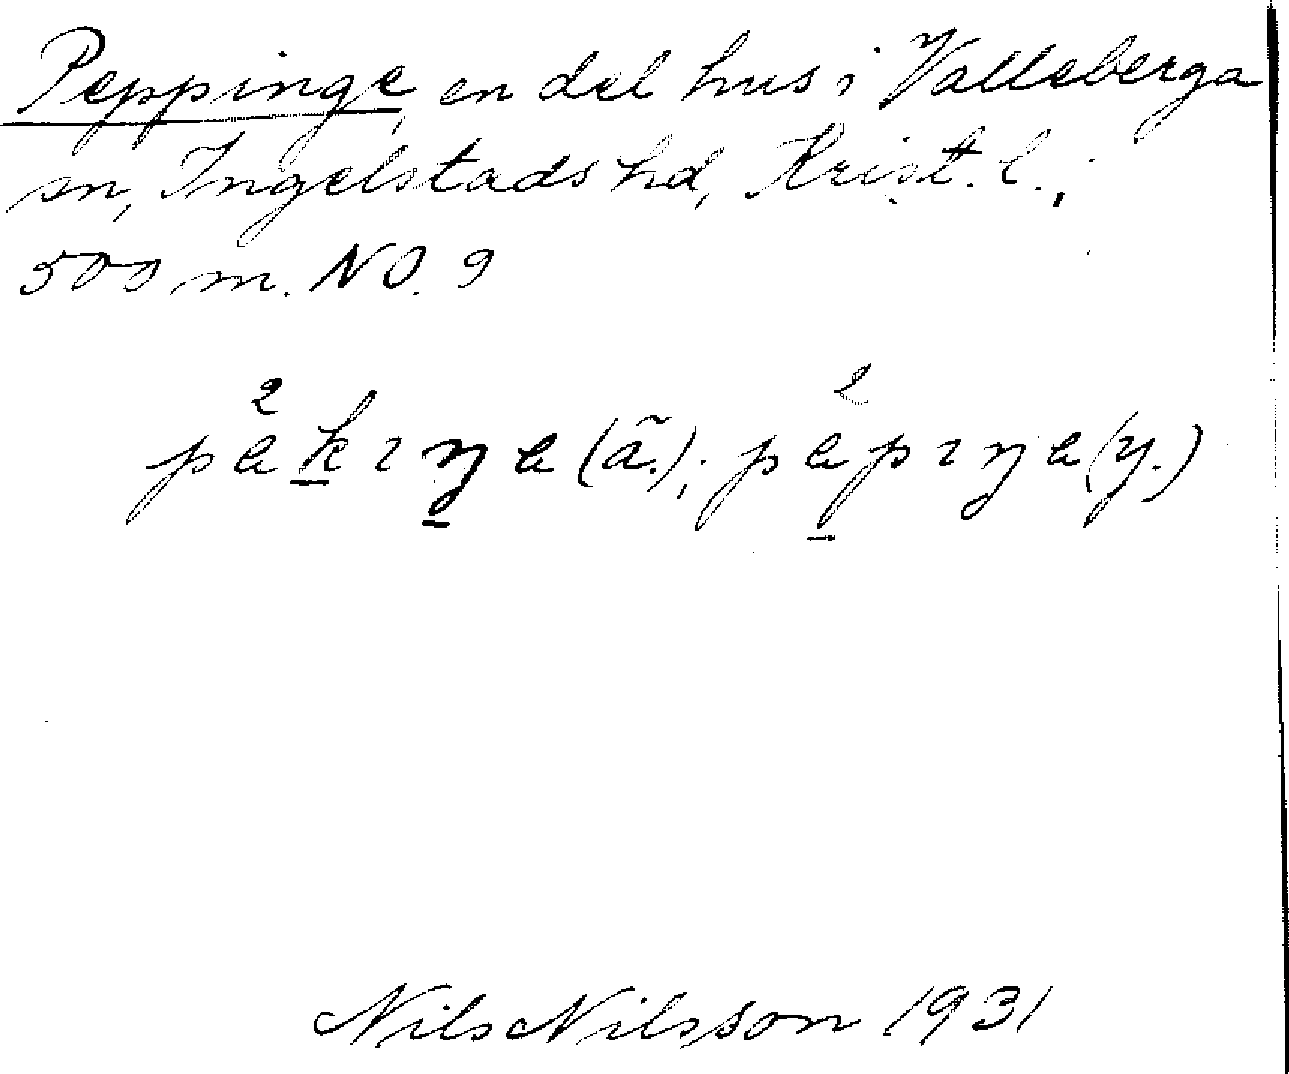 Peppinge, en del hus i Valleberga
sn, Ingelstads hd, Krist. l.,
500 m. NO. 9
Nils Nilsson 1931